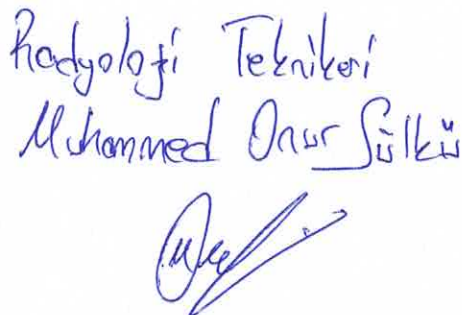 Radyoloji Teknikeri
Muhammed Onur Sülkü